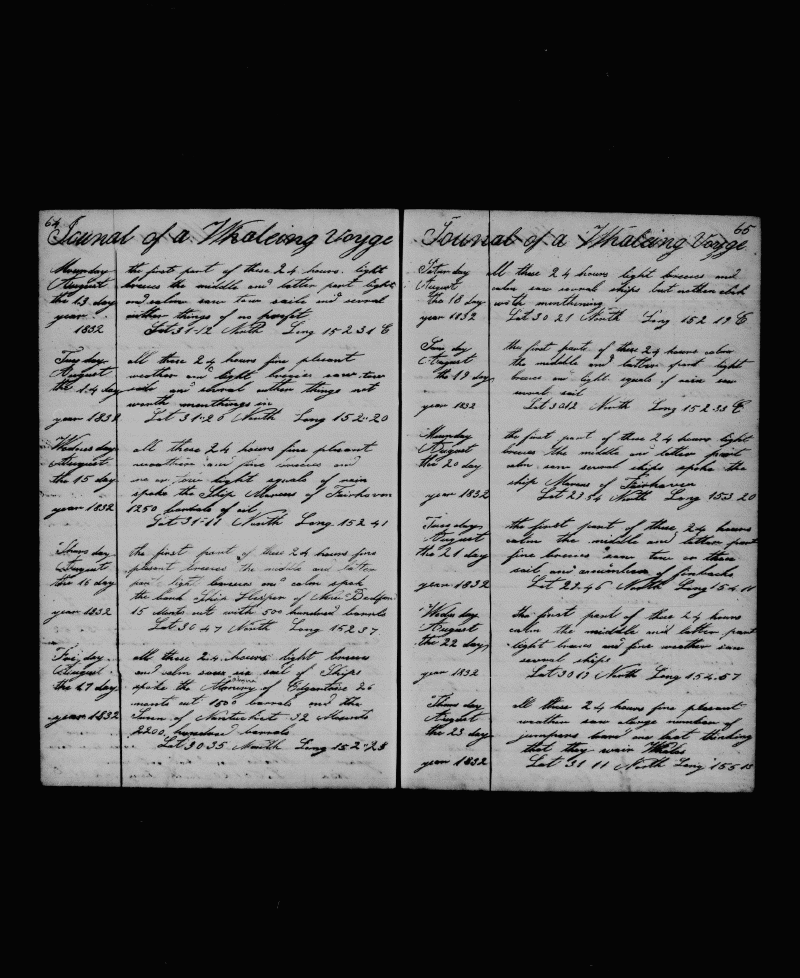 64
Journal of a Whaleing Voyge
Monday
August
the 13 day
year
1832
the first part of these 24 hours light
breezes the middle and latter part light
and calm saw two sails and several
other things of no profit
Lat 31-12 North Long 152 31 E
Tuesday
August
the 14 day
year 1832
all these 24 hours fine plesent
weather and light breezies saw two
sails and several other things not
worth menthings in
Lat 31-26 North Long 152-20
Wednesday
August
the 15 day
year 1832
all these 24 hours fine plesent
weather and fine breezes and
one or two light squals of rain
spoke the Ship Marcus of Fairhaven
1250 barbals of oil
Lat 31-11 North Long 152 41
Thursday
August
the 16 day
year 1832
the first part of these 24 hours fine
plesent breezes the middle and latter
part light breezes and calm spok
the bank Ship Hesper of New Bedford
15 Munts out with 500 hundred barrels
Lat 30 47 North Long 152 37
Friday
August
the 17 day
year 1832
all these 24 hours light breezes
and calm saw six sail of Ships
spoke the of Edgartone 26
monts out 1500 barrels and the
of Nantucket 32 Munts
2200 hundred barrels
Lat 30 35 North Long 152-28
65
Journal of a Whaleing Voyge
Saturday
August
the 18 day
year 1832
all these 24 hours light breezes and
calm saw several ships but nothen
worth menthening
Lat 30 21 North Long 152 19 E
Sunday
August
the 19 day
year 1832
the first part of these 24 hours calm
the middle and latter part light
breezes and light squals of rain saw
several sail
Lat 30 12 North Long 152 33 E
Munday
August
the 20 day
year 1832
the first part of these 24 hours light
breezes the middle and latter part
calm saw several ships spoke the
ship Marcus of Fairhaven
Lat 29 54 North Long 153 20
Tuesday
August
the 21 day
year 1832
the first part of these 24 hours
calm the middle and latter part
fine breezes saw two or three
sail and a number of finbacks
Lat 29 46 North Long 154 11
Wedsday
August
the 22 day
year 1832
the first part of these 24 hours
calm the middle and latter part
light breezes and fine weather saw
several ships
Lat 30 13 North Long 154-57
Thursday
August
the 23 day
year 1832
all these 24 hours fine plesent
weather saw a large number of
jumpers lowered one boat thinking
that they wair Whales
Lat 31 11 North Long 155 13